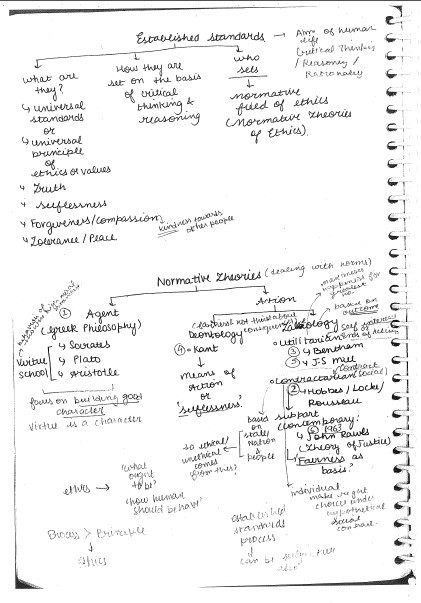 Established standards → Aim of human
life
Critical Thinking
/ Reasoning /
Rationality
what are
they?
↳ universal
standards
or
↳ universal
principle
of
ethics or values
↳ Truth
↳ selflessness
↳ Forgiveness/compassion
↳ kindness towards
other people
↳ Tolerance / Peace
How they are
set on the basis
of critical
thinking &
reasoning
who
sets
normative
field of ethics
(Normative Theories
of Ethics).
Normative Theories (dealing with norms)
① Agent
(Greek Philosophy)
Virtue
school
↳ Socrates
↳ Plato
↳ Aristotle
focus on building good
character
Virtue is a character
Action
maximises
happiness for
greatest
no.
Deontology
④ → Kant
Means of
Action
or
'selflessness.'
so ethical/
unethical
comes
from this
based on
outcome
self interest
ends of action
Utilitarian
③ → Bentham
⑤ → J.S Mill
contractarian (social
contract
② → Hobbes/ Locke/
Rousseau
basis
on
state/
Nation
people
support
contemporary:
⑥ 1963
↳ John Rawls
(Theory of Justice)
'Fairness as
basis.'
individual
make right
choice under
hypothetical
social
contract.
ethics →
'what
ought
to be'
'how human
should behave'
Process > Principle
ethics
established
standards
process
can be